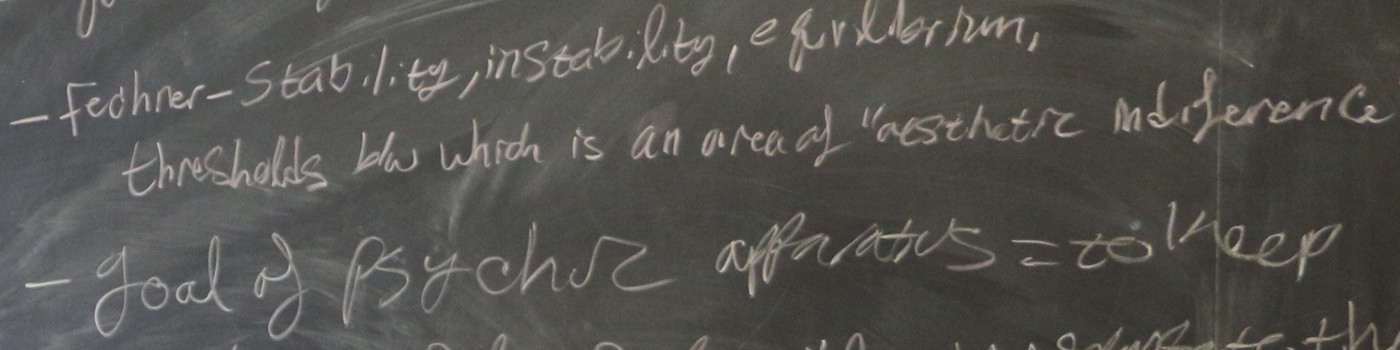 - Fechner - Stability, instability, equilibrium,
thresholds b/w which is an area of "aesthetic indifference
- goal of psychic apparatus = to keep